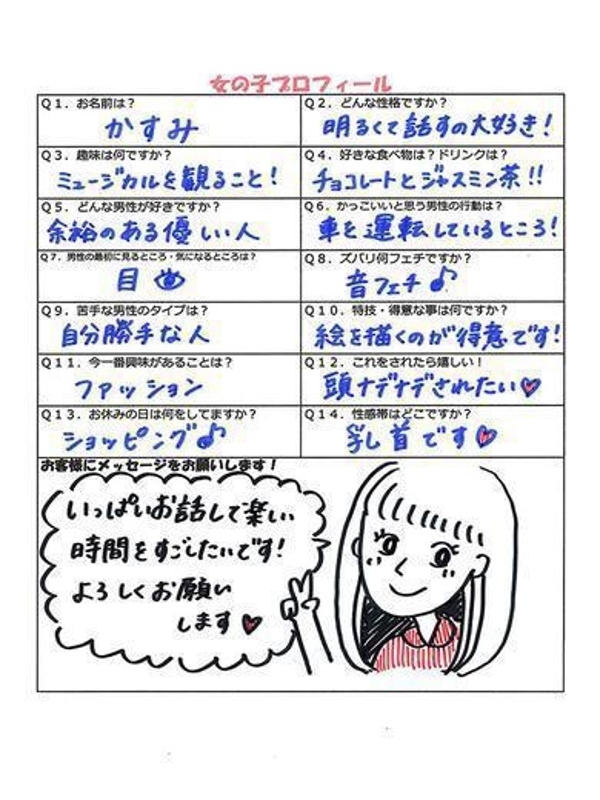 女の子プロフィール
Q1．お名前は？
かすみ
Q2．どんな性格ですか？
明るくて話すの大好き！
Q3．趣味は何ですか？
ミュージカルを観ること！
Q4．好きな食べ物は？ドリンクは？
チョコレートとジャスミン茶!!
Q5．どんな男性が好きですか？
余裕のある優しい人
Q6．かっこいいと思う男性の行動は？
車を運転しているところ！
Q7．男性の最初に見るところ・気になるところは？
目
Q8．ズバリ何フェチですか？
音フェチ♪
Q9．苦手な男性のタイプは？
自分勝手な人
Q10．特技・得意な事は何ですか？
絵を描くのが得意です！
Q11．今一番興味があることは？
ファッション
Q12．これをされたら嬉しい！
頭ナデナデされたい♡
Q13．お休みの日は何をしてますか？
ショッピング♪
Q14．性感帯はどこですか？
乳首です♡
お客様にメッセージをお願いします！
いっぱいお話して楽しい
時間をすごしたいです！
よろしくお願い
します♡